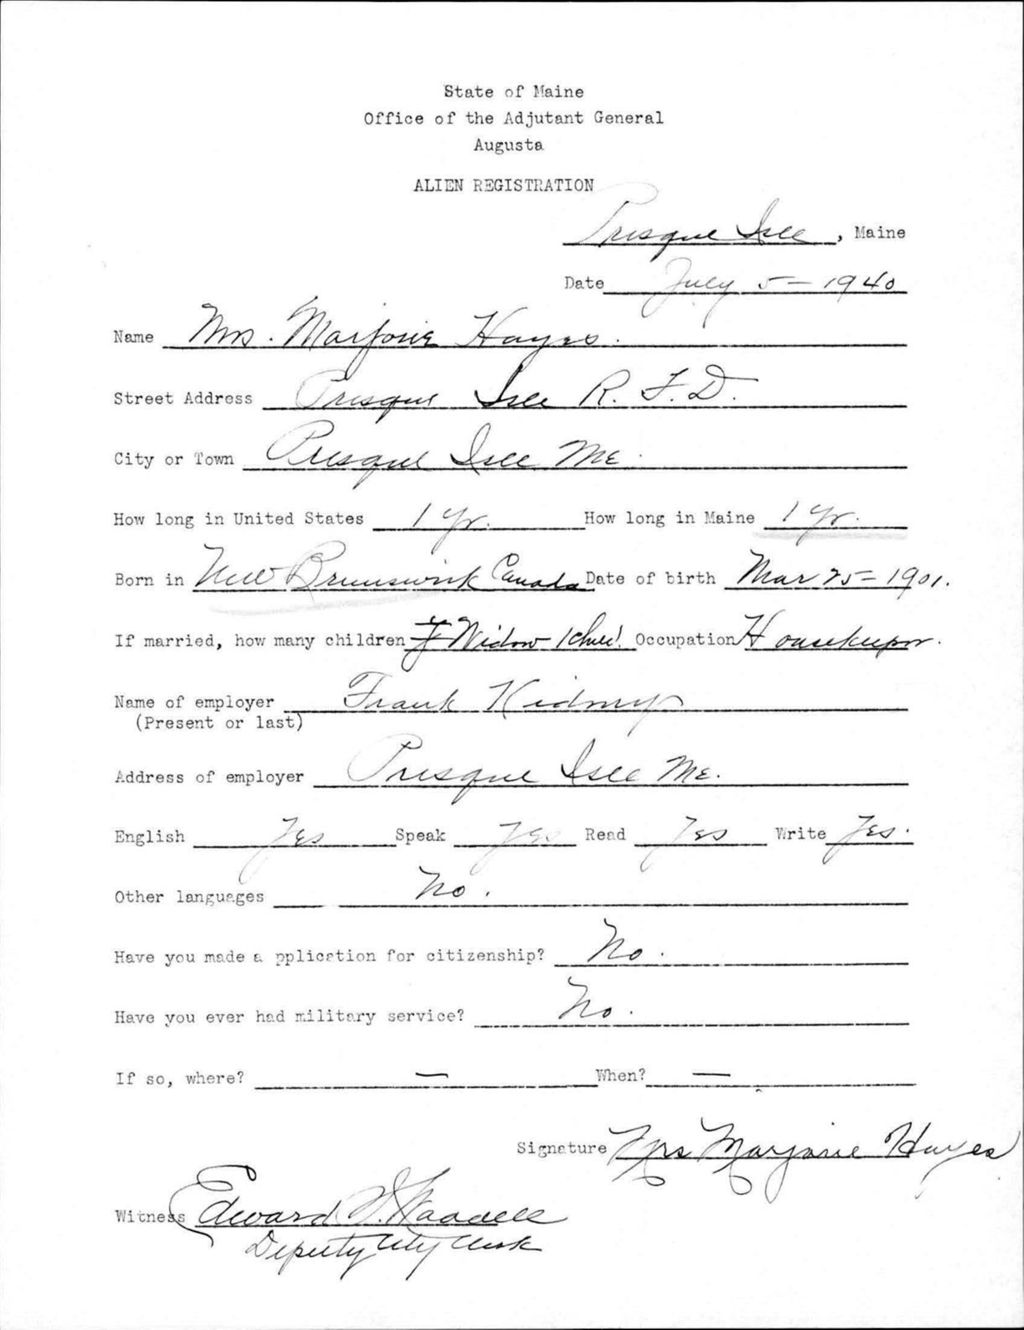 State of Maine
Office of the Adjutant General
Augusta
ALIEN REGISTRATION
Presque Isle, Maine
Date July 5 - 1940
Name Mrs. Marjorie Hayes.
Street Address Presque Isle R. F. D.
City or Town Presque Isle Me.
How long in United States 1 yr. How long in Maine 1 yr.
Born in New Brunswick Canada Date of birth Mar 25 - 1901.
If married, how many children Widow 1 child. Occupation Housekeeper.
Name of employer Frank
(Present or last)
Address of employer Presque Isle Me.
English Yes Speak Yes Read Yes Write Yes.
Other languages No.
Have you made a pplication for citizenship? No.
Have you ever had military service? No.
If so, where? — When? —
Signature Mrs Marjorie Hayes
Witness Edward
Deputy City Clerk